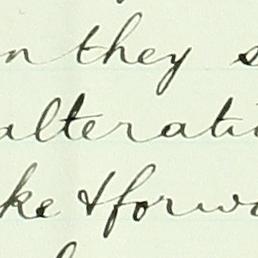 n they s
alterati
ke & forwa